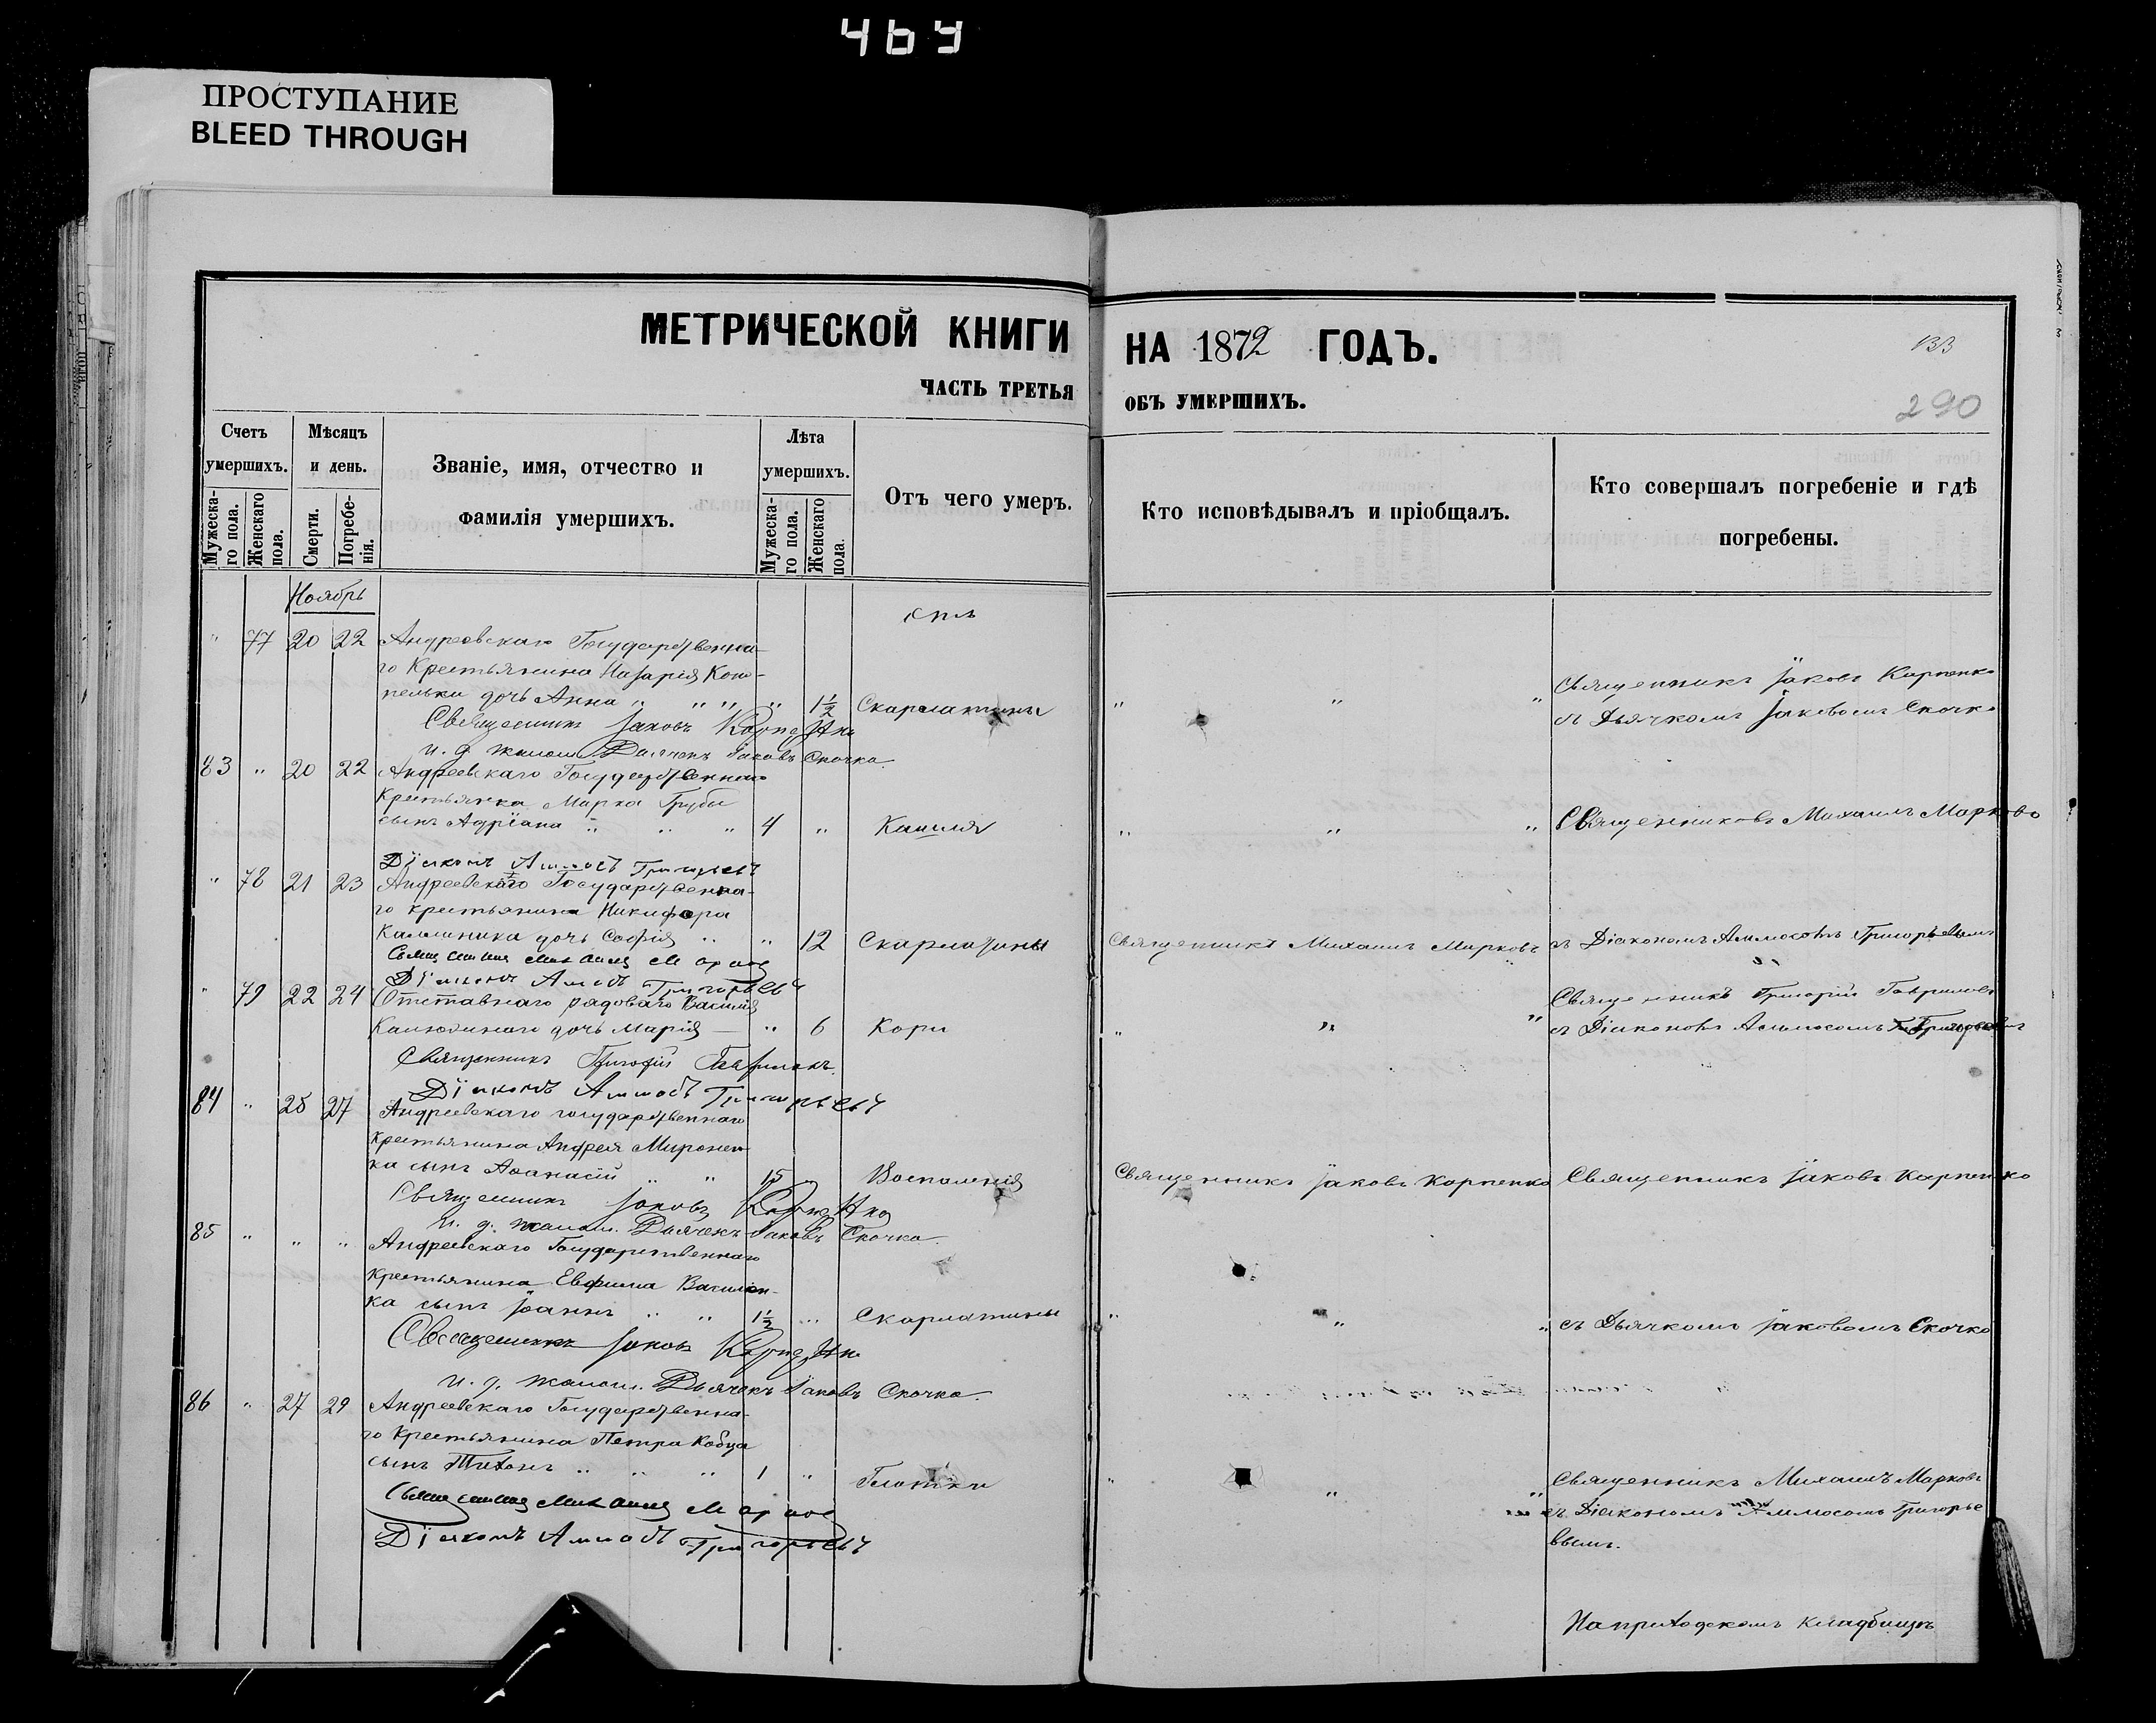 469
ПРОСТУПАНИЕ
BLEED THROUGH
МЕТРИЧЕСКОЙ КНИГИ НА 1872 ГОДЪ.
133
ЧАСТЬ ТРЕТЬЯ ОБЪ УМЕРШИХЪ.
290
Счетъ умершихъ.
Мужеска-го пола.
Женскаго пола.
Мѣсяцъ и день.
Смерти.
Погребе-нія.
Званіе, имя, отчество и
фамилія умершихъ.
Лѣта умершихъ.
Мужеска-го пола.
Женскаго пола.
Отъ чего умеръ.
Кто исповѣдывалъ и пріобщалъ.
Кто совершалъ погребеніе и гдѣ
погребены.
Ноябрь
" 77 20 22 Андреевскаго Государственна-
го Крестьянина Назарія
дочь Анна " " " " 1½ Скарлатины " " "
Священникъ Іаковъ Карпенко
съ Дьячкомъ Іаковомъ Скочко
Священникъ Іаковъ Карпенко
и. д. Дьячекъ Іаковъ Скочко
83 " 20 22 Андреевскаго Государственнаго
Крестьянина Марка Грубы
сынъ Адріанъ " " " 4 " Кашля " " "
Священникъ Михаилъ Марковъ
Діаконъ Аммосъ Григорьевъ
" 78 21 23 Андреевскаго Государственна-
го крестьянина Никифора
Калиника дочь Софія " " 12 Скарлатины
Священникъ Михаилъ Марковъ
съ Діакономъ Аммосомъ Григорьевымъ
Священникъ Михаилъ Марковъ
Діаконъ Аммосъ Григорьевъ
" 79 22 24 Отставнаго рядоваго Василія
дочь Марія — " 6 Кори " " "
Священникъ Григорій Гавриловъ
съ Діакономъ Аммосомъ Григорьевымъ
Священникъ Григорій Гавриловъ.
Діаконъ Аммосъ Григорьевъ
84 " 25 27 Андреевскаго государственнаго
крестьянина Андрея Миронен-
ка сынъ Аѳанасій " " 15 Воспаленія
Священникъ Іаковъ Карпенко
Священникъ Іаковъ Карпенко
Священникъ Іаковъ Карпенко
и. д. Дьячекъ Іаковъ Скочко.
85 " " " Андреевскаго Государственнаго
Крестьянина Евфима Василен-
ка сынъ Іоаннъ " " 1½ " Скарлатины " " "
съ Дьячкомъ Іаковомъ Скочко
Священникъ Іаковъ Карпенко
и. д. Дьячекъ Іаковъ Скочко.
86 " 27 29 Андреевскаго Государственна-
го Крестьянина Петра Кобца
сынъ Тихонъ " " " 1 " " " "
Священникъ Михаилъ Марковъ
съ Діакономъ Аммосомъ Григорье
вымъ.
Священникъ Михаилъ Марковъ
Діаконъ Аммосъ Григорьевъ
На приходскомъ кладбищѣ